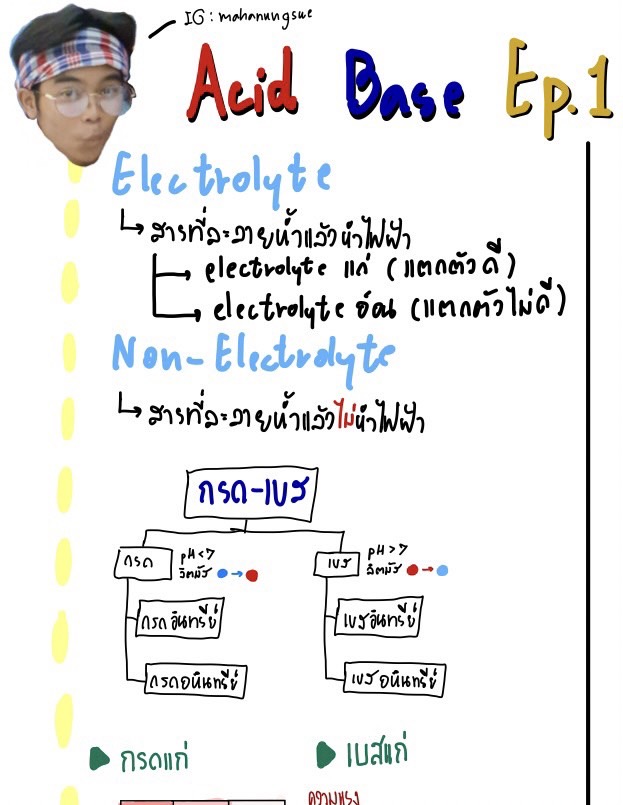 IG: mahanungsue
Acid Base Ep.1
Electrolyte
สารที่ละลายน้ำแล้วนำไฟฟ้า
electrolyte แก่ (แตกตัวดี)
electrolyte อ่อน (แตกตัวไม่ดี)
Non-Electrolyte
สารที่ละลายน้ำแล้วไม่นำไฟฟ้า
กรด-เบส
กรด
pH<7
ลิตมัส
เบส
pH>7
ลิตมัส
กรดอินทรีย์
เบสอินทรีย์
กรดอนินทรีย์
เบสอนินทรีย์
กรดแก่
เบสแก่
ความแรง